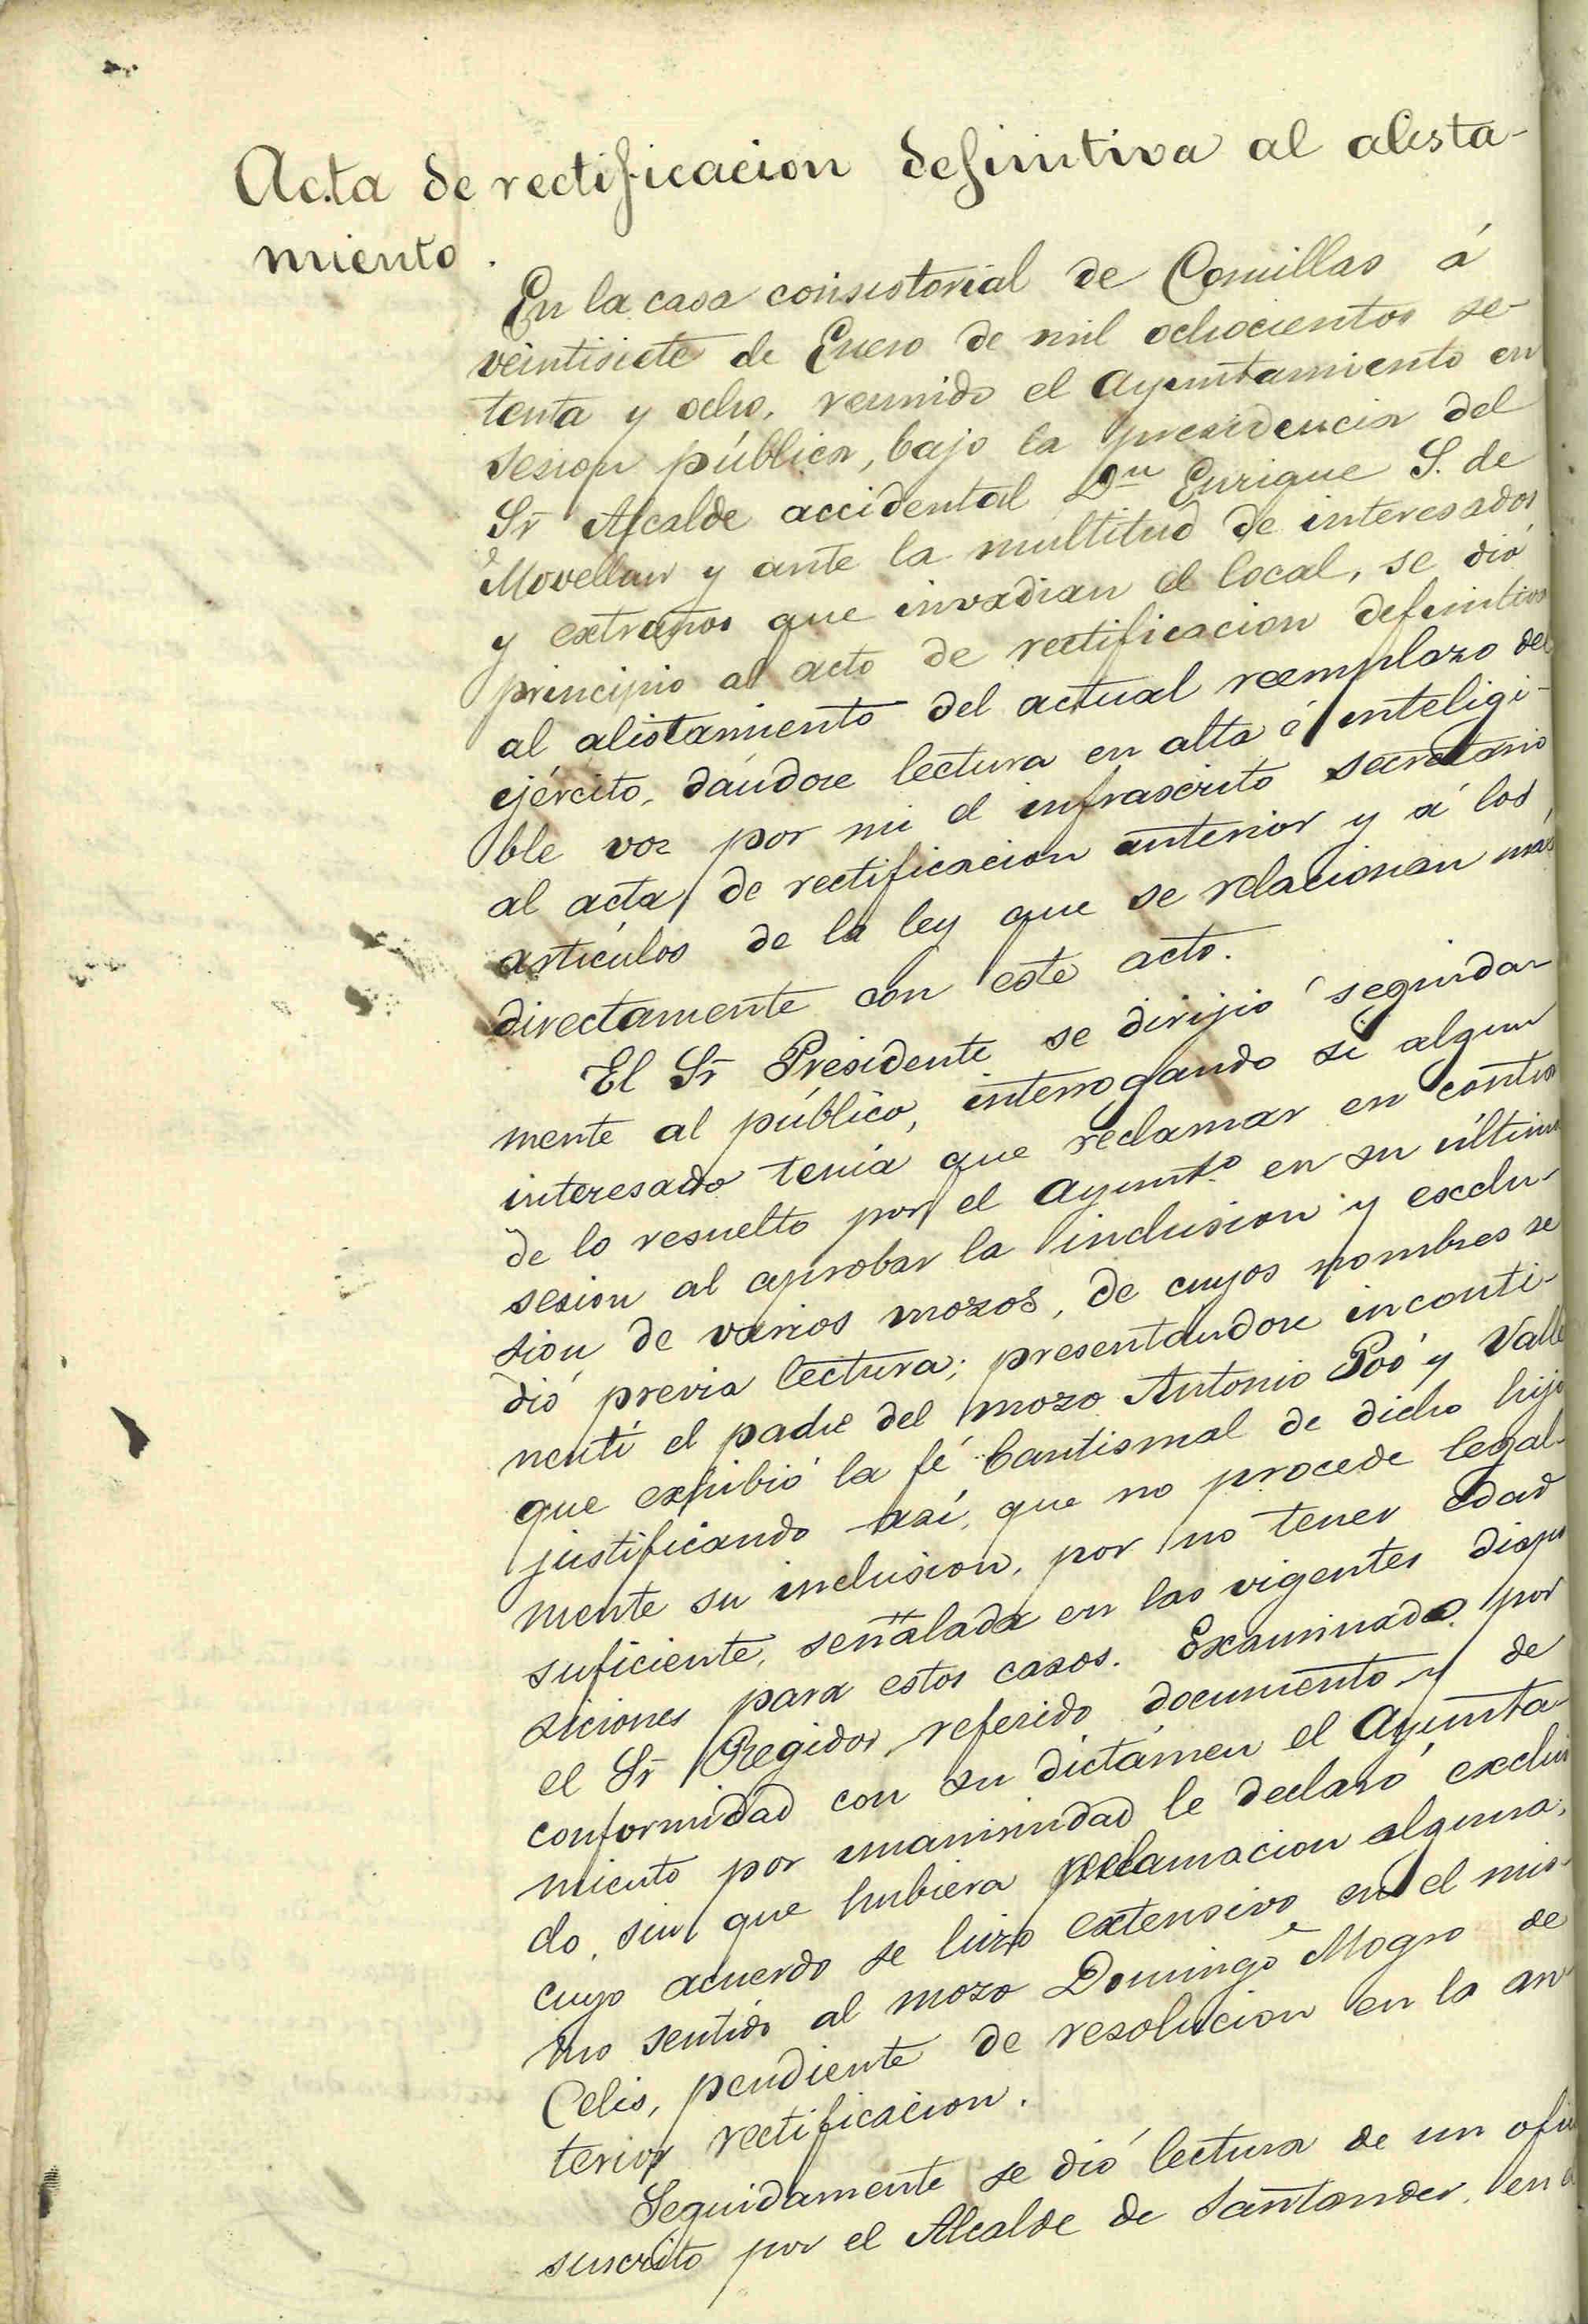 Acta de rectificacion definitiva al alista-
miento.
En la casa consistorial de Comillas á
veintisiete de Enero de mil ochocientos se-
tenta y ocho, reunido el Ayuntamiento en
sesion pública, bajo la presidencia del
Sr Alcalde accidental Dn Enrique S. de
Movellan y ante la multitud de interesados
y extraños que invadian el local, se dió
principio al acto de rectificacion definitiva
al alistamiento del actual reemplazo del
ejército, dándose lectura en alta é inteligi-
ble voz por mi el infrascrito secretario
al acta de rectificacion anterior y á los
artículos de la ley que se relacionan más
directamente con este acto.
El Sr Presidente se dirijió seguida-
mente al público, interrogando si algun
interesado tenía que reclamar en contra
de lo resuelto por el Ayunto en su última
sesion al aprobar la inclusion y exclu-
sión de varios mozos, de cuyos nombres se
dió previa lectura; presentandose inconti-
nenti el padre del mozo Antonio Poó y Valle
que exhibió la fé bautismal de dicho hijo
justificando así, que no procede legal-
mente su inclusion, por no tener edad
suficiente, señalada en las vigentes dispo
siciones para estos casos. Examinado por
el Sr Regidor referido documento y de
conformidad con su dictámen el Ayunta-
miento por unanimidad le declaró exclui
do, sin que hubiera reclamacion alguna;
cuyo acuerdo se hizo extensivo en el mis-
mo sentido al mozo Domingo Mogro de
Celis, pendiente de resolucion en la an-
terior rectificacion.
Seguidamente se dió lectura de un ofi
suscrito por el Alcalde de Santander, en